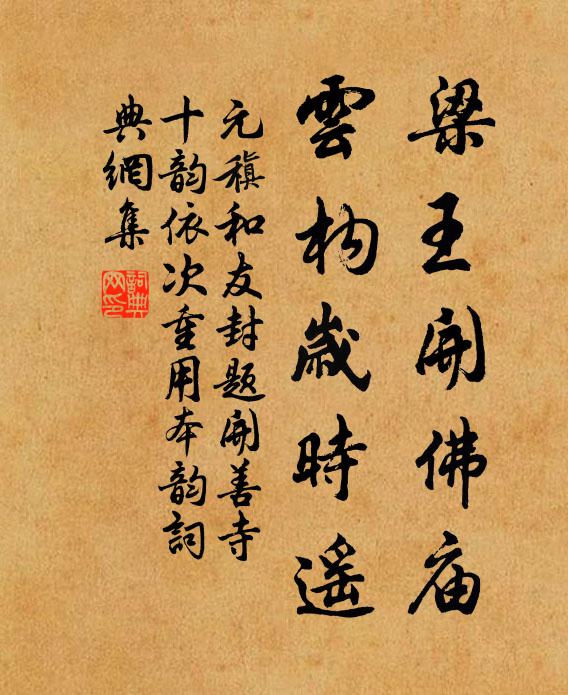 梁王開佛庙
雲构歲時遥
元稹和友封题開善寺
十韵依次重用本韵詞
典網集
詞典网印